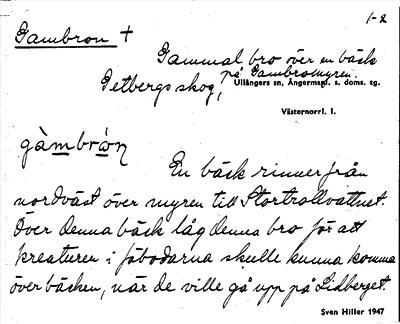 1-2
Gambron +
Gammal bro över en bäck
på Gambromyren.
Getbergs skog,
Ullångers sn, Ångermanl. s. doms. tg.
Västernorrl. l.
gàmbrón
En bäck rinner från
nordväst över myren till Stortrollvattnet.
Över denna bäck låg denna bro för att
kreaturen i fäbodarna skulle kunna komma
över bäcken, när de ville gå upp på Lidberget.
Sven Hiller 1947